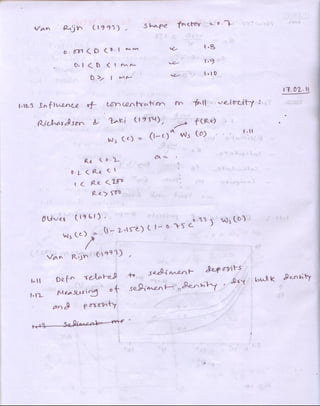 Van Rijn (1993), shape factor = 0.7
0.001 < D < 0.1 mm use 1.8
0.1 < D < 1 mm use 1.9
D ≥ 1 mm use 1.10
17.02.11
1.10.3 Influence of concentration on fall velocity :-
Richardson & Zaki (1954), f(Re)
Ws (c) = (1-c)^a Ws (0) 1.11
Re < 0.2 a =
0.2 < Re < 1
1 < Re < 200
Re > 500
Oliver (1961),
Ws (c) = (1 - 2.15c) (1 - 0.75 c^0.33) Ws (0)
Van Rijn (1993),
1.11 Defn related to sediment deposits
1.12 Measuring of sediment density, dry bulk density
and porosity
1.13 Sediment